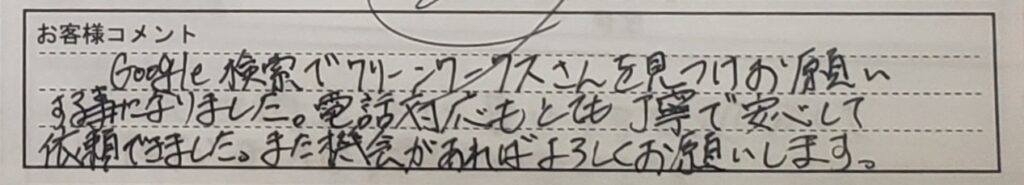 お客様コメント
Google検索でクリーンワークスさんを見つけお願い
する事になりました。電話対応もとても丁寧で安心して
依頼できました。また機会があればよろしくお願いします。